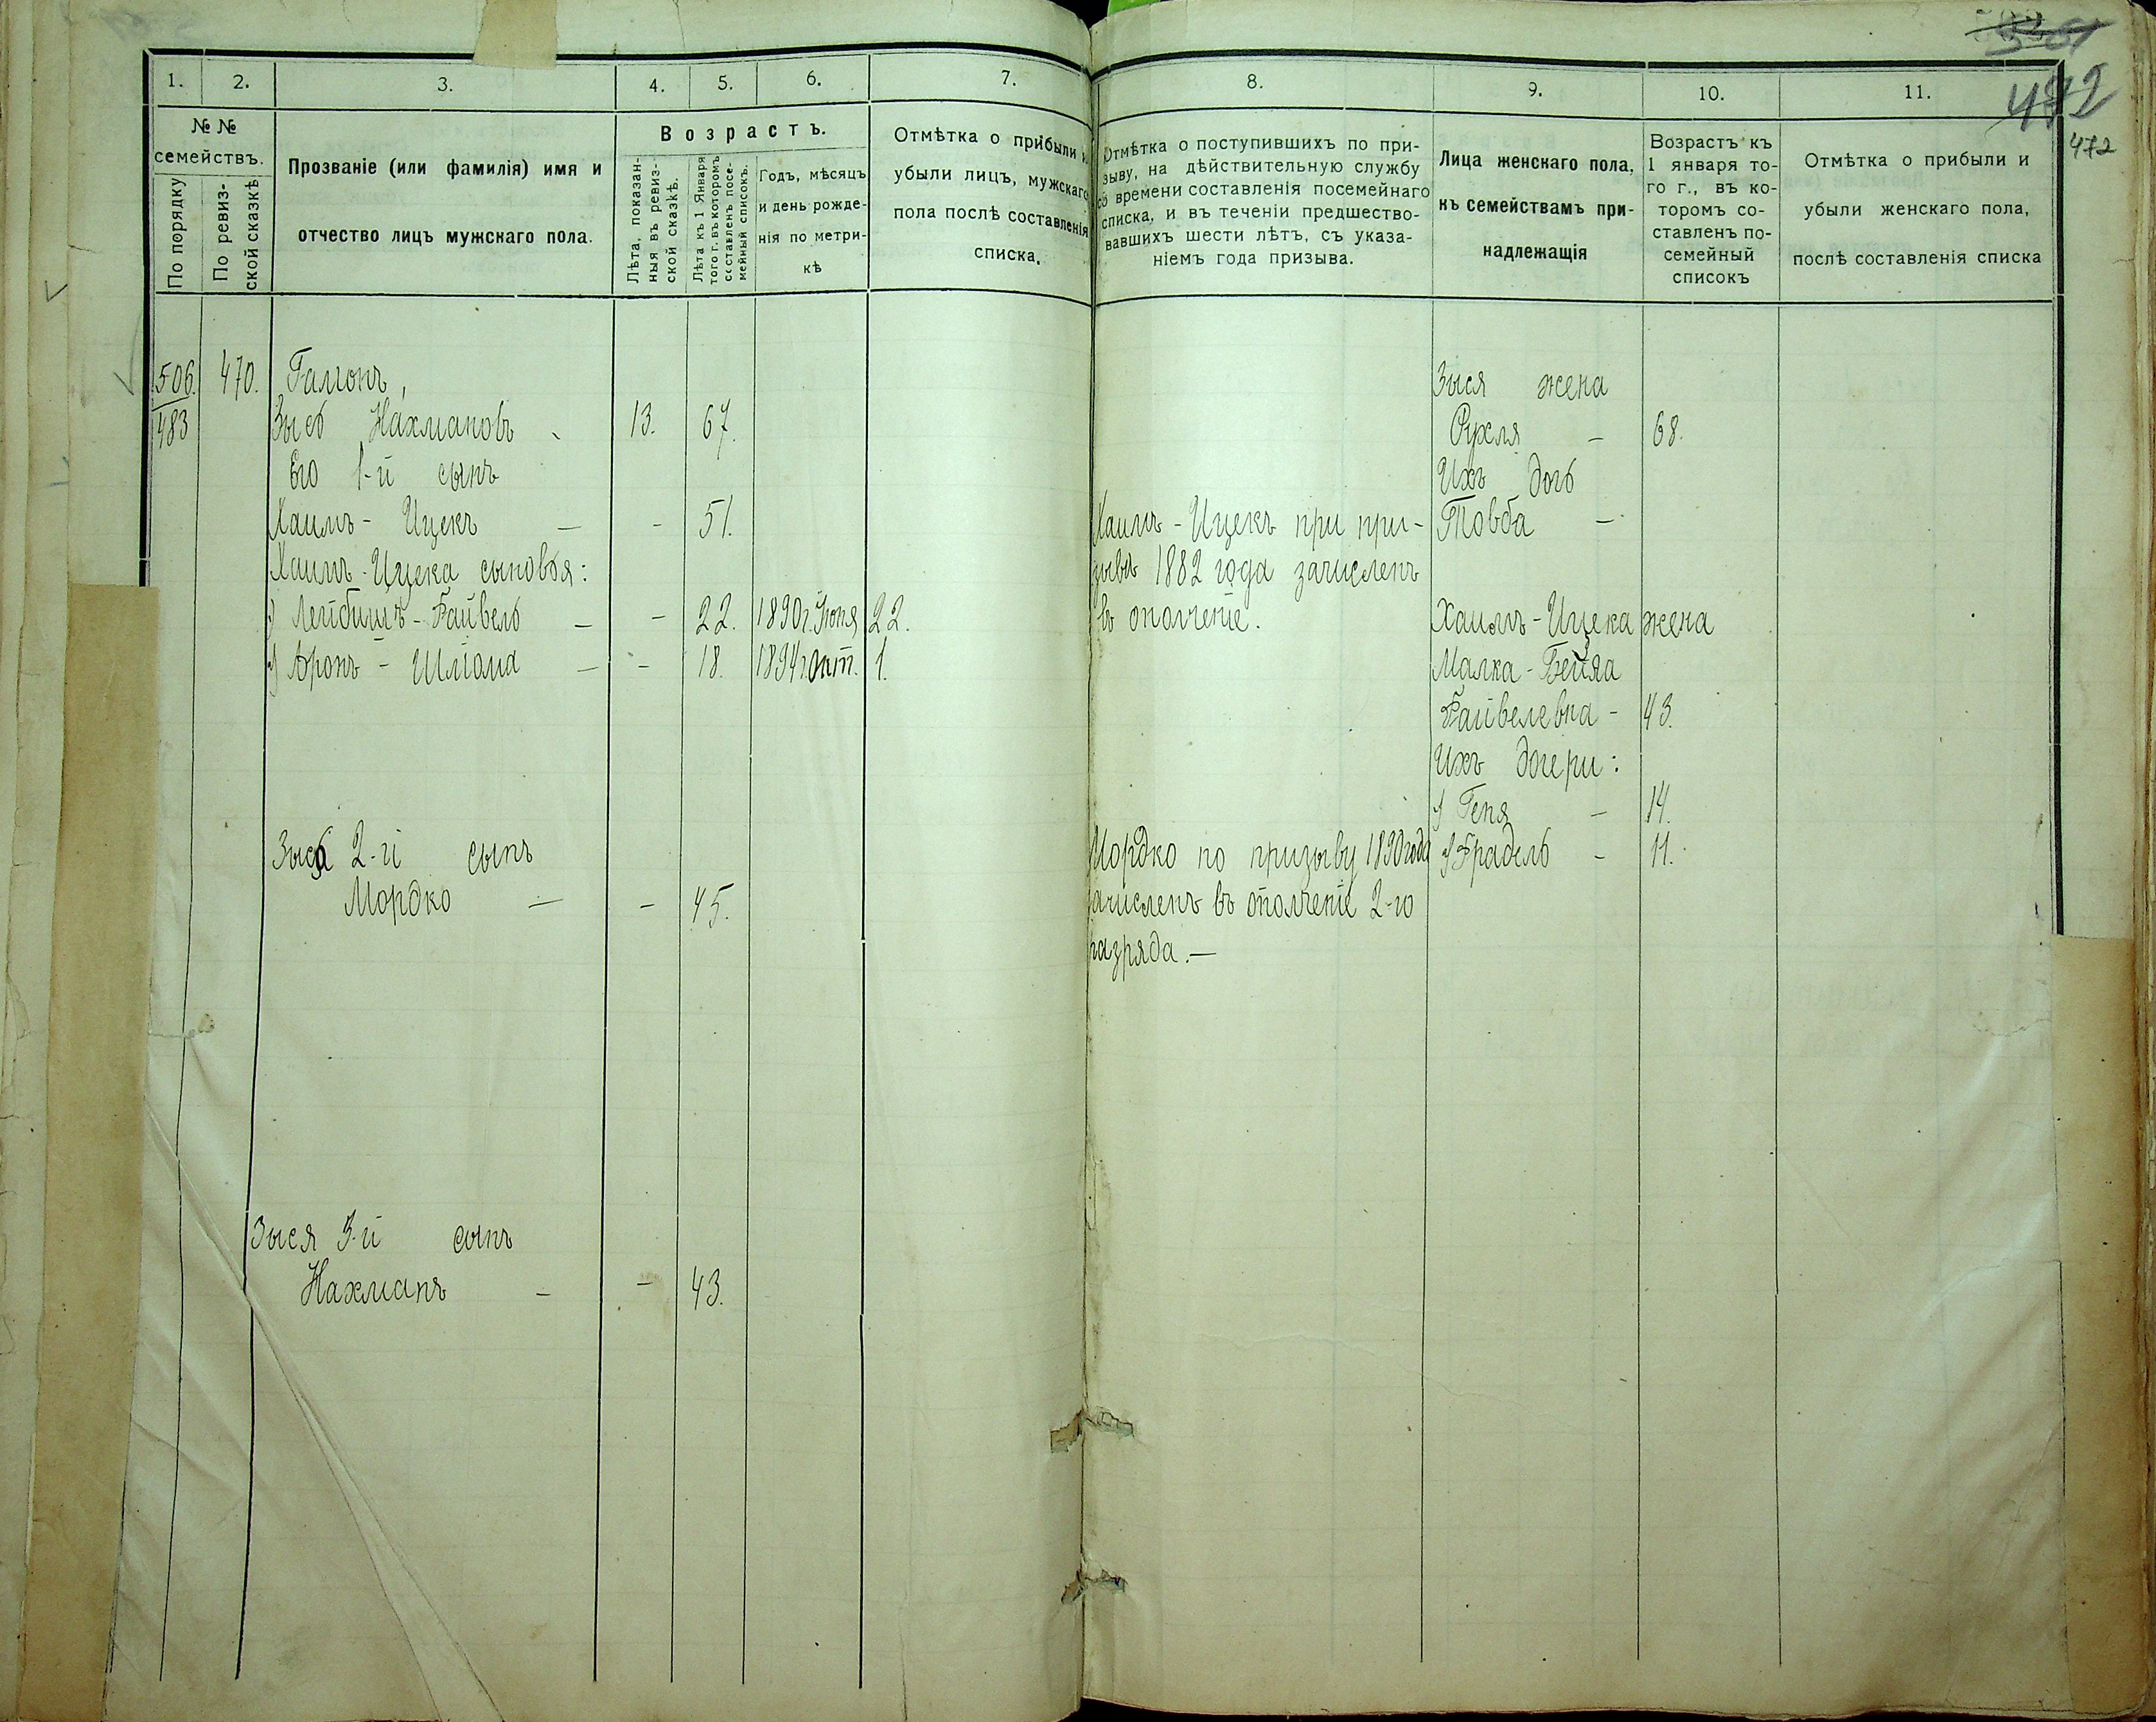 472
472
1. 2. 3. 4. 5. 6. 7. 8. 9. 10. 11.
№ №
семействъ.
По порядку
По ревиз-
ской сказкѣ
Прозваніе (или фамилія) имя и
отчество лицъ мужскаго пола.
Возрастъ.
Лѣта, показан-
ныя въ ревиз-
ской сказкѣ.
Лѣта къ 1 Января
того г. въ которомъ
составленъ посе-
мейный списокъ.
Годъ, мѣсяцъ
и день рожде-
нія по метри-
кѣ
Отмѣтка о прибыли и
убыли лицъ, мужскаго
пола послѣ составленія
списка.
Отмѣтка о поступившихъ по при-
зыву, на дѣйствительную службу
со времени составленія посемейнаго
списка, и въ теченіи предшество-
вавшихъ шести лѣтъ, съ указа-
ніемъ года призыва.
Лица женскаго пола,
къ семействамъ при-
надлежащія
Возрастъ къ
1 января то-
го г., въ ко-
торомъ со-
ставленъ по-
семейный
списокъ
Отмѣтка о прибыли и
убыли женскаго пола,
послѣ составленія списка
506. 470. Гамонъ,
483 Зысь Нахмановъ 13. 67.
Его 1-й сынъ
Хаимъ-Ицекъ — - 51.
Хаимъ-Ицека сыновья:
Лейбишъ-Файвель — - 22. 1890 г. Іюня 22.
Аронъ-Шліома — - 18. 1894 г. Окт. 1.
Зыся 2-й сынъ
Мордко — - 45.
Зыся 3-й сынъ
Нахманъ - - 43.
Хаимъ-Ицекъ при при-
зывѣ 1882 года зачисленъ
въ ополченіе.
Мордко по призыву 1890 года
зачисленъ въ ополченіе 2-го
разряда.—
Зыся жена
Рухля - 68.
Ихъ дочь
Товба -
Хаимъ-Ицека жена
Малка-Бейла
Файвелевна - 43.
Ихъ дочери:
Геня - 14.
Фрадель - 11.